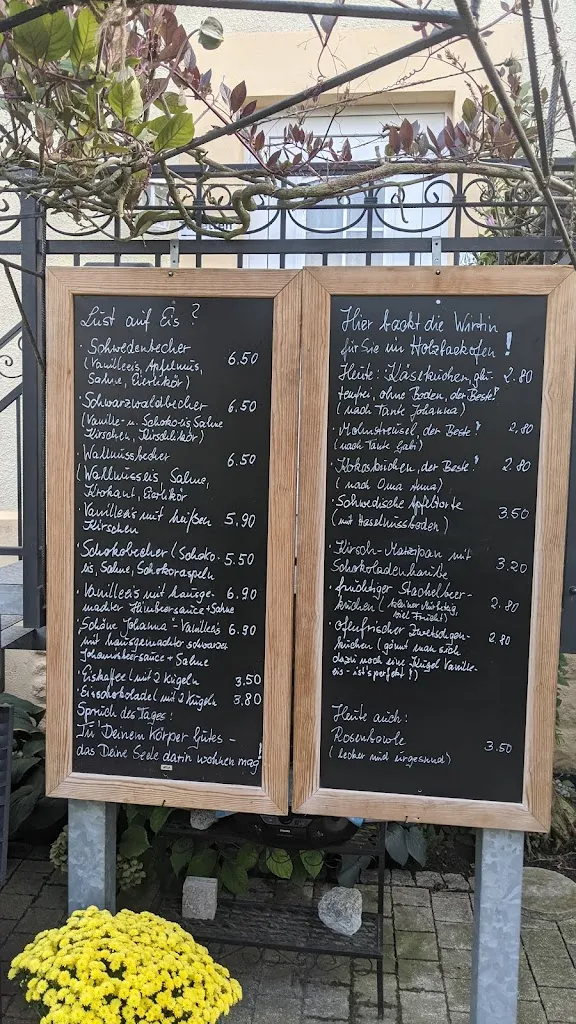 Lust auf Eis ?
· Schwedenbecher 6.50
(Vanilleeis, Apfelmus,
Sahne, Eierlikör)
· Schwarzwaldbecher 6.50
(Vanille- u. Schoko-is, Sahne
Kirschen, Kirschlikör)
· Wallnussbecher 6.50
(Wallnusseis, Sahne,
Krokant, Eierlikör
· Vanilleeis mit heißen 5.90
Kirschen
· Schokobecher (Schoko- 5.50
eis, Sahne, Schokoraspeln
· Vanilleeis mit hausge- 6.90
machter Himbeersauce + Sahne
· "Schöne Johanna" - Vanilleeis 6.90
mit hausgemachter schwarzer
Johannisbeersauce + Sahne
· Eiskaffee (mit 2 Kugeln 3.50
· Eisschokolade (mit 2 Kugeln 3.80
Spruch des Tages:
Tu Deinem Körper Gutes -
das Deine Seele darin wohnen mag!
Hier backt die Wirtin
für Sie im Holzbackofen !
Heute: Käsekuchen, glu- 2.80
tenfrei, ohne Boden, der Beste!
(nach Tante Johanna)
· Mohnstreusel, der Beste! 2.80
(nach Tante Gabi)
· Kokoskuchen, der Beste! 2.80
(nach Oma Anna)
· Schwedische Apfeltorte 3.50
(mit Haselnussboden)
· Kirsch-Marzipan mit 3.20
Schokoladenhaube
· fruchtiger Stachelbeer-
kuchen (kleiner Mürbteig, 2.80
viel Frucht)
· ofenfrischer Zwetschgen- 2.80
kuchen (gönnt man sich
dazu noch eine Kugel Vanille-
eis - ist's perfekt!)
Heute auch:
Rosenbowle 3.50
(lecker und ungesund)